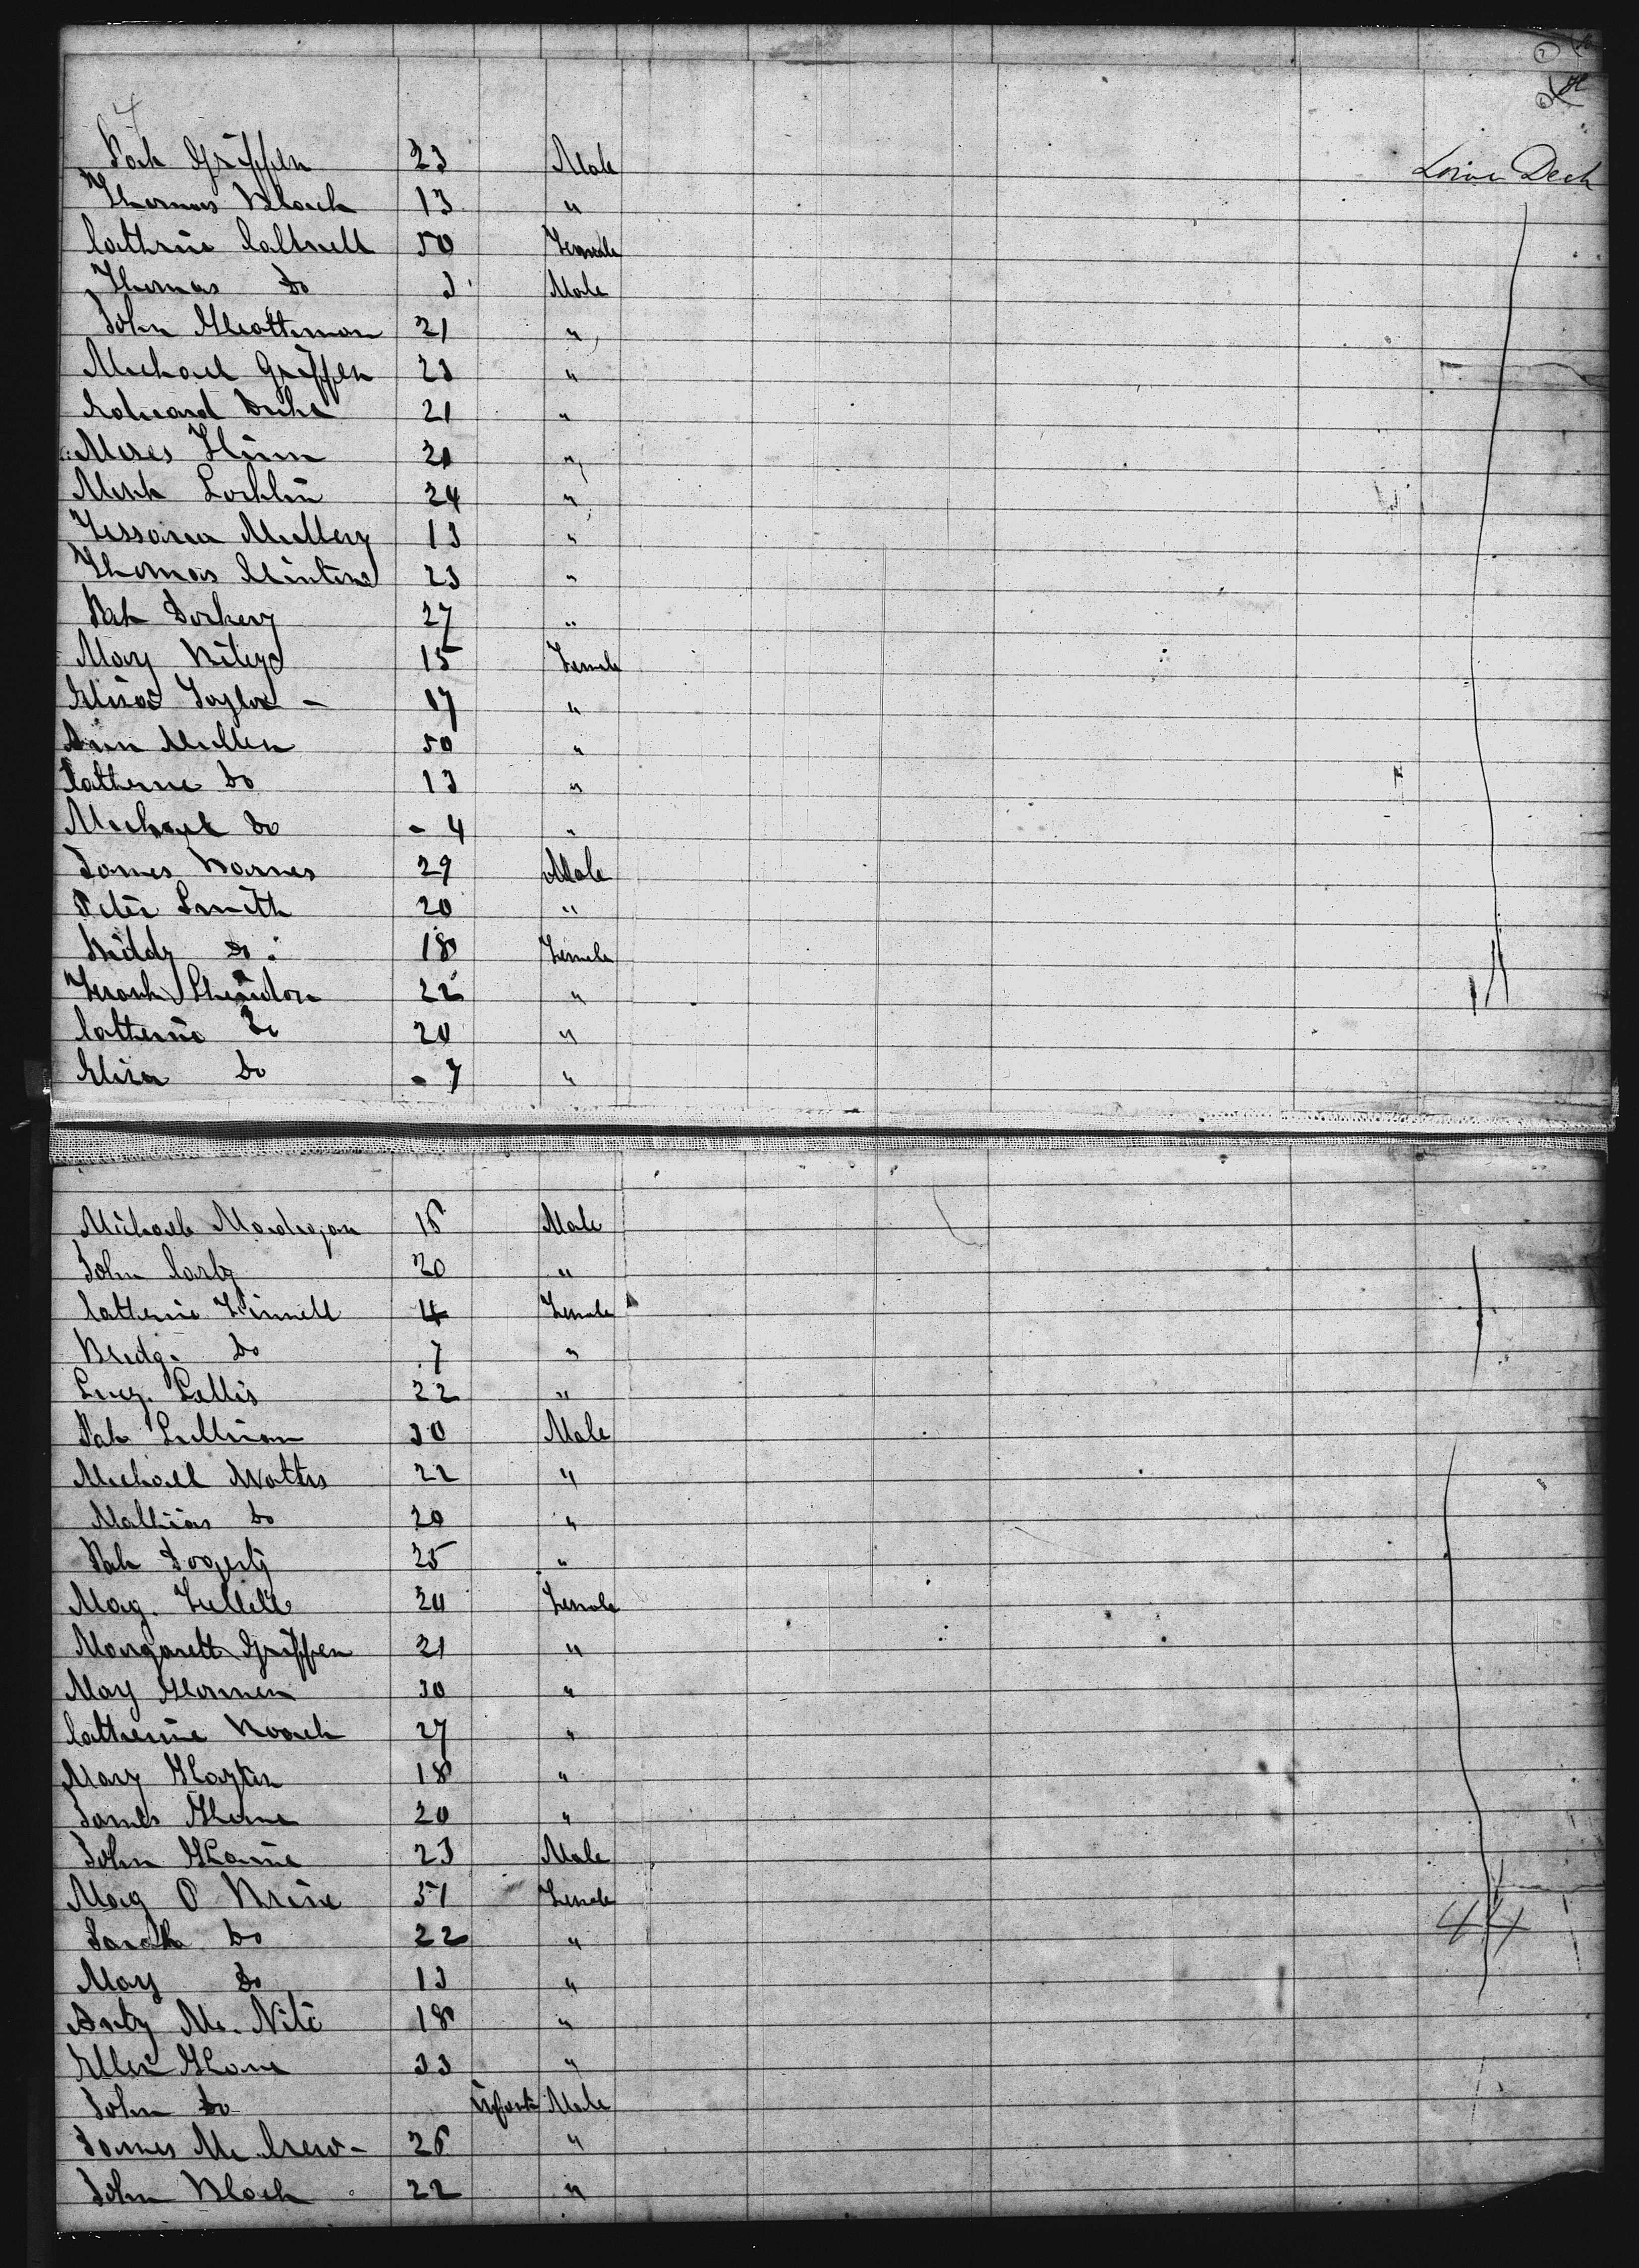 4
Pat Griffen 23 Male Lower Deck
Thomas Black 13 "
Catherine Caltnell 50 Female
Thomas Do 3 Male
John Heatterman 21 "
Michael Griffen 23 "
Edward Duke 21 "
Moses Flinn 20 "
Mark Locklin 24 "
Mullery 13 "
Thomas 23 "
Pat Dockery 27 "
Mary Riley 15 Female
Eliza Taylor - 17 "
Ann Mullen 50 "
Catherine Do 13 "
Michael Do - 4 "
James Barnes 29 Male
Peter Smith 20 "
Biddy Do 18 Female
Frank Sheridon 22 "
Catherine Do 20 "
Eliza Do - 7 "
Michael Madegan 15 Male
John Carty 20 "
Catherine Finnell 4 Female
Bridg. Do 7 "
Lucy. Lallis 22 "
Pat Sullivan 30 Male
Michael Watters 22 "
Mathias Do 20 "
Pat Dogerty 25 "
Mag. 20 Female
Margarett Griffen 21 "
Mary 30 "
Catherine Roach 27 "
Mary Hayten 18 "
James 20 "
John 23 Male
Mag O Brine 51 Female
Sarah Do 22 " 44
Mary Do 13 "
Anty Mc. Nite 18 "
Ellen 33 "
John Do infant Male
James Mc Crew - 25 "
John Black 22 "